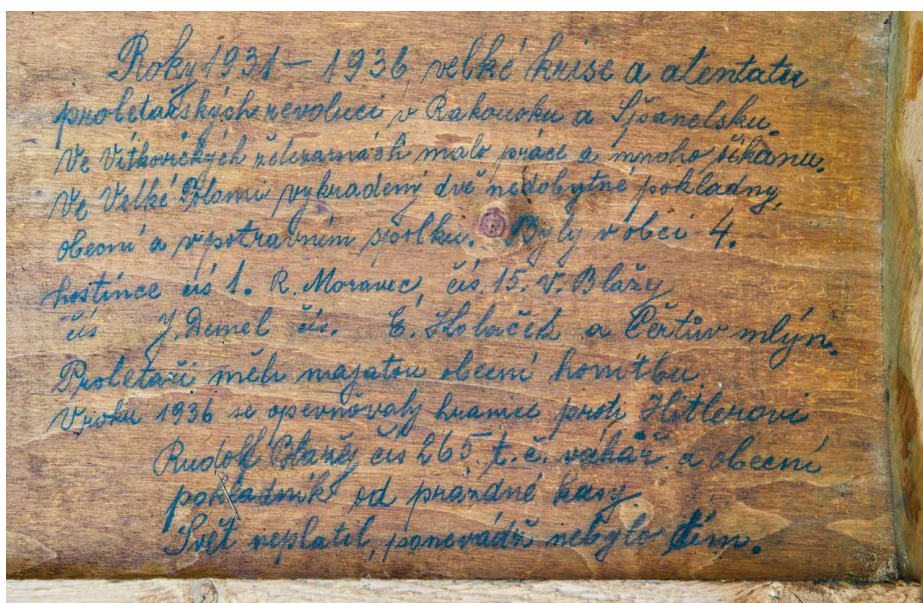 Roky 1931 – 1936 velké krise a atentatu
proletářských revolucí v Rakousku a Španělsku.
Ve Vítkovických železárnách málo práce a mnoho šikánu.
Ve Velké Polomi vykradeny dvě nedobytné pokladny,
obecní a v potravním spolku. Byly v obci 4.
hostince čís 1. R. Moravec, čís. 15. V. Blažy
čís J. Demel čís. E. Holaček a Čertův mlýn.
Proletáři měli majatou obecní honitbu.
V roku 1936 se opevňovaly hranice proti Hitlerovi
Rudolf Blažej čís 265 t. č. vahář a obecní
pokladník od prázdné kasy
Svět neplatil, ponevádž nebylo čím.